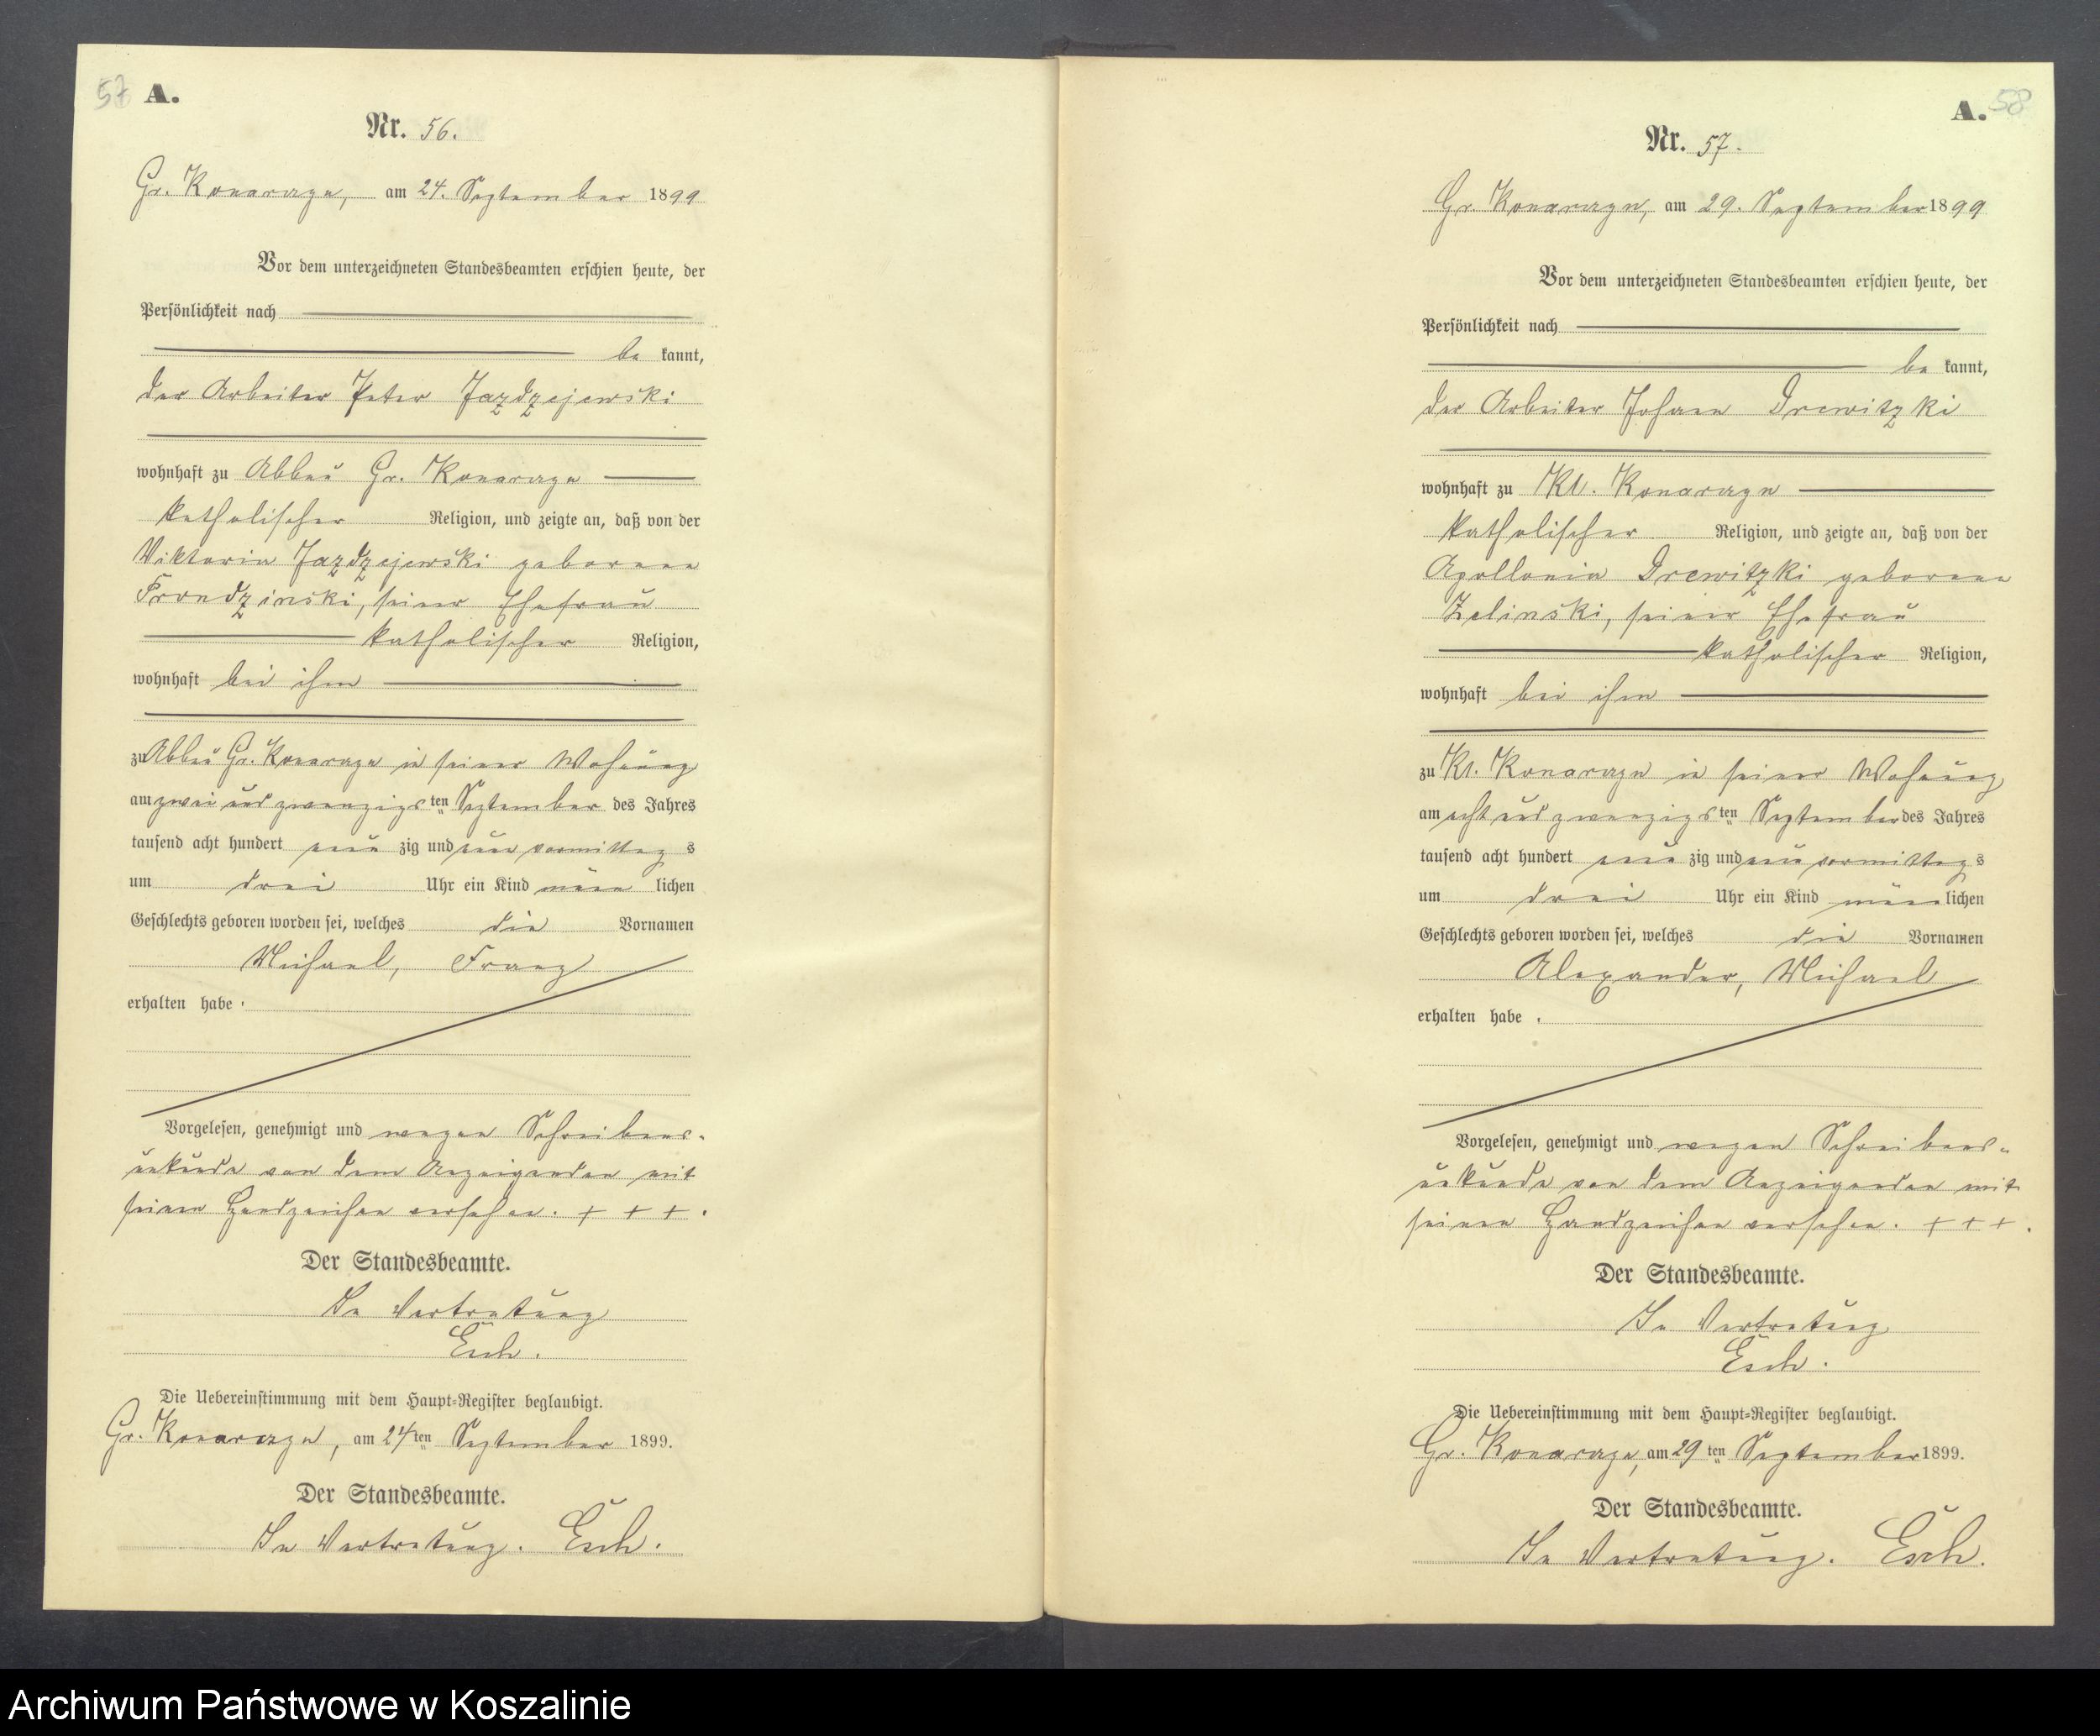 57 A.
Nr. 56.
Gr. Konarczyn, am 24. September 1899
Vor dem unterzeichneten Standesbeamten erschien heute, der
Persönlichkeit nach
be kannt,
der Arbeiter Peter Jazdzejewski
wohnhaft zu Abbau Gr. Konarczyn
katholischer Religion, und zeigte an, daß von der
Viktoria Jazdzejewski geborene
Prondzinski, seiner Ehefrau
katholischer Religion,
wohnhaft bei ihm
zu Abbau Gr. Konarczyn in seiner Wohnung
am zwei und zwanzigsten September des Jahres
tausend acht hundert neun zig und neun vormittag s
um drei Uhr ein Kind männ lichen
Geschlechts geboren worden sei, welches die Vornamen
Michael, Franz
erhalten habe.
Vorgelesen, genehmigt und wegen Schreibens-
unkunde von dem Anzeigenden mit
seinem Handzeichen versehen. + + + .
Der Standesbeamte.
In Vertretung
Esch.
Die Uebereinstimmung mit dem Haupt-Register beglaubigt.
Gr. Konarczyn, am 24ten September 1899.
Der Standesbeamte.
In Vertretung. Esch.
A. 58
Nr. 57.
Gr. Konarczyn, am 29. September 1899
Vor dem unterzeichneten Standesbeamten erschien heute, der
Persönlichkeit nach
be kannt,
der Arbeiter Johann Drewitzki
wohnhaft zu Kl. Konarczyn
katholischer Religion, und zeigte an, daß von der
Apollonia Drewitzki geborene
Zelinski, seiner Ehefrau
katholischer Religion,
wohnhaft bei ihm
zu Kl. Konarczyn in seiner Wohnung
am acht und zwanzigsten September des Jahres
tausend acht hundert neun zig und neun vormittag s
um drei Uhr ein Kind männ lichen
Geschlechts geboren worden sei, welches die Vornamen
Alexander, Michael
erhalten habe.
Vorgelesen, genehmigt und wegen Schreibens-
unkunde von dem Anzeigenden mit
seinen Handzeichen versehen. + + + .
Der Standesbeamte.
In Vertretung
Esch.
Die Uebereinstimmung mit dem Haupt-Register beglaubigt.
Gr. Konarczyn, am 29 ten September 1899.
Der Standesbeamte.
In Vertretung. Esch.
Archiwum Państwowe w Koszalinie